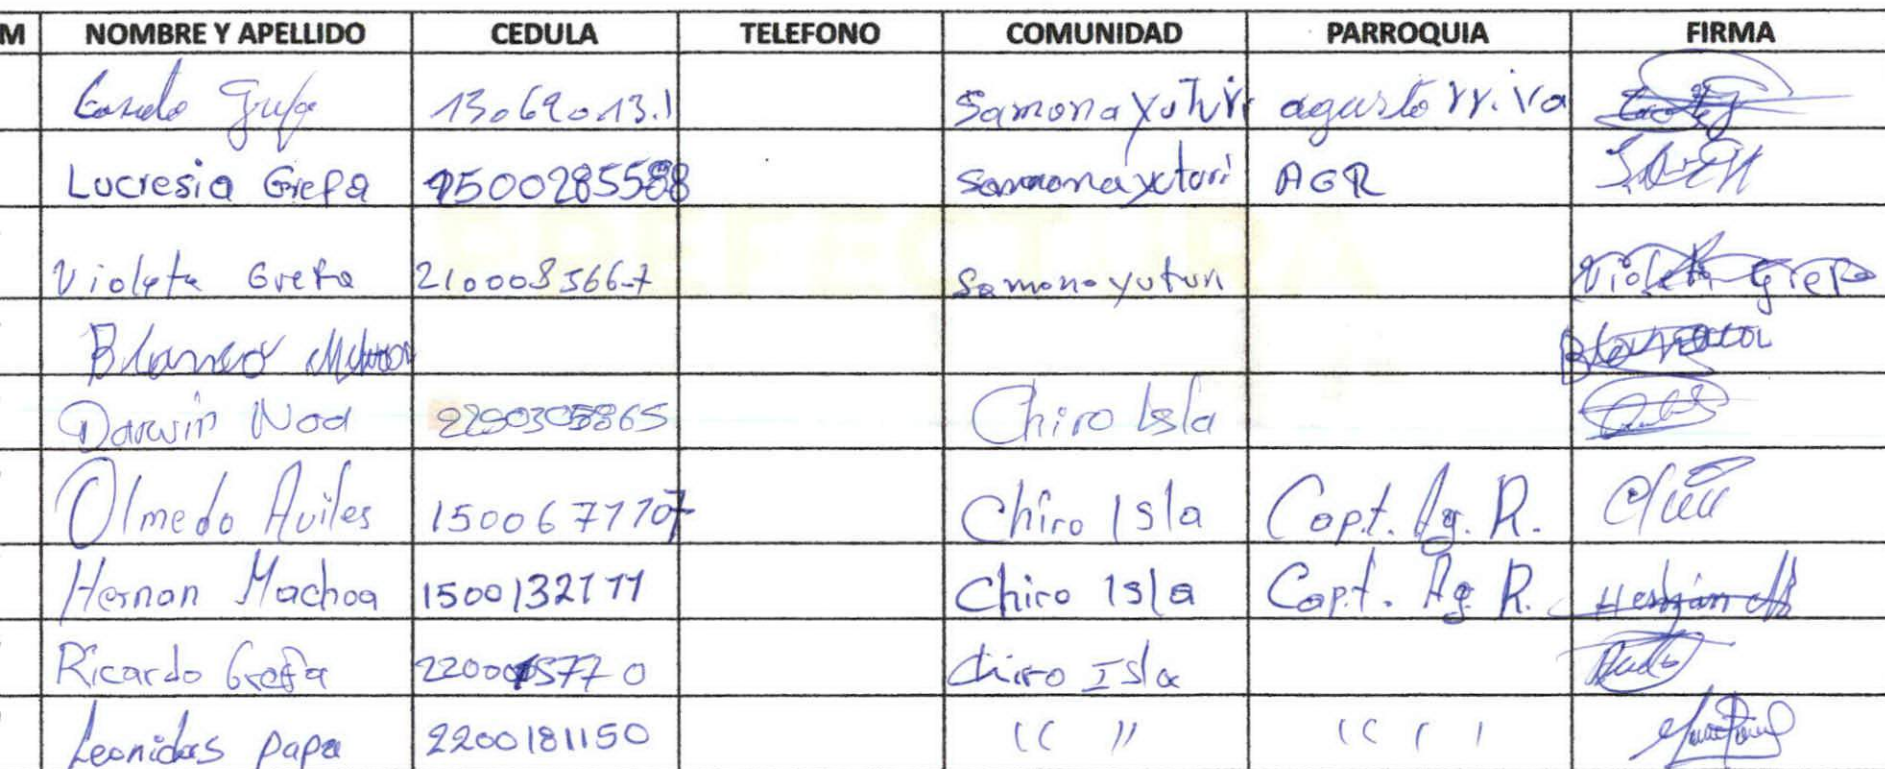 M NOMBRE Y APELLIDO CEDULA TELEFONO COMUNIDAD PARROQUIA FIRMA
Samona Yuturi agusto rr.iva
Lucresia Grefa 1500285588 Samonayuturi AGR
Violeta Grefa 210008566-7 Samona yuturi Violeta Grefa
Blanco
Darwin Noa 2200305865 Chiro Isla
Olmedo Aviles 1500677107 Chiro Isla Capt. Ag. R.
Hernan Machoa 1500132111 Chiro Isla Capt. Ag. R. Hernán
Ricardo Grefa Chiro Isla
Leonidas Papa 2200181150 (( )) (( ( )
PREFECTURA